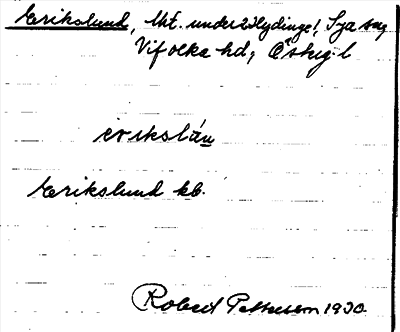 Erikslund, Uhf. under 2 Hydinge!, Sya sn,
Vifolka hd, Östg. l
ērikslán
Erikslund kb.
Robert Pettersson 1930